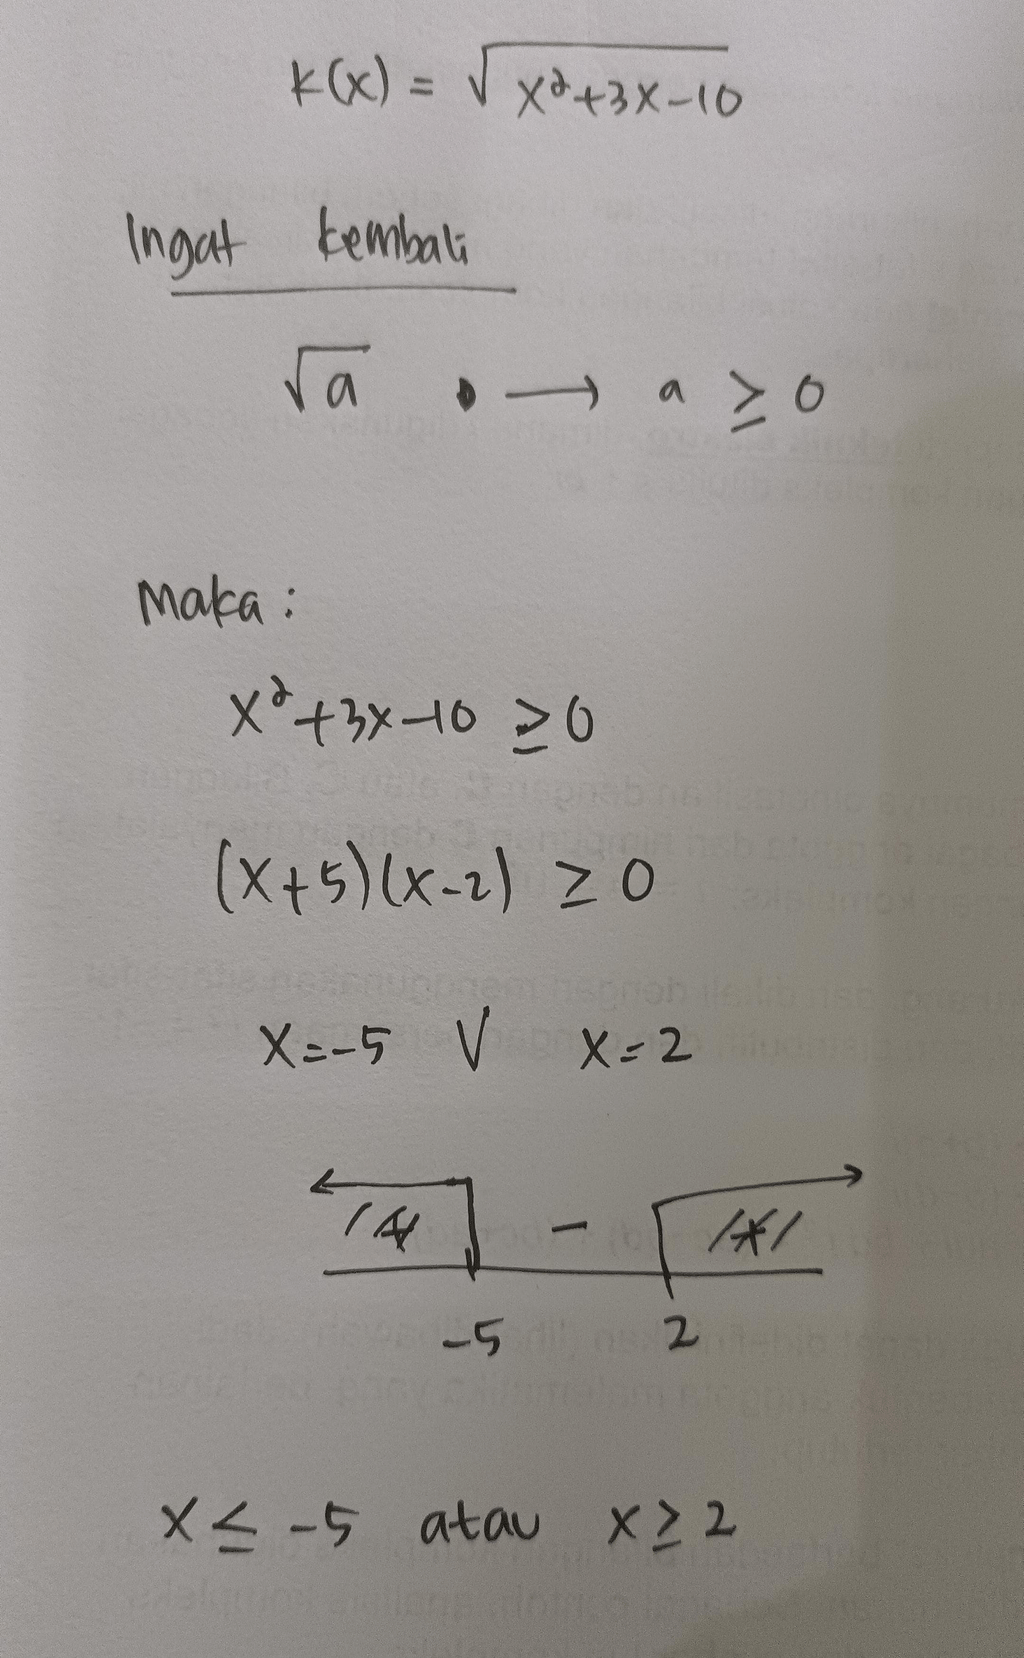 k(x) = √(x²+3x-10)
Ingat kembali
√a • → a ≥ 0
Maka :
x²+3x-10 ≥ 0
(x+5)(x-2) ≥ 0
x=-5 V x=2
+ - +
-5 2
x ≤ -5 atau x ≥ 2